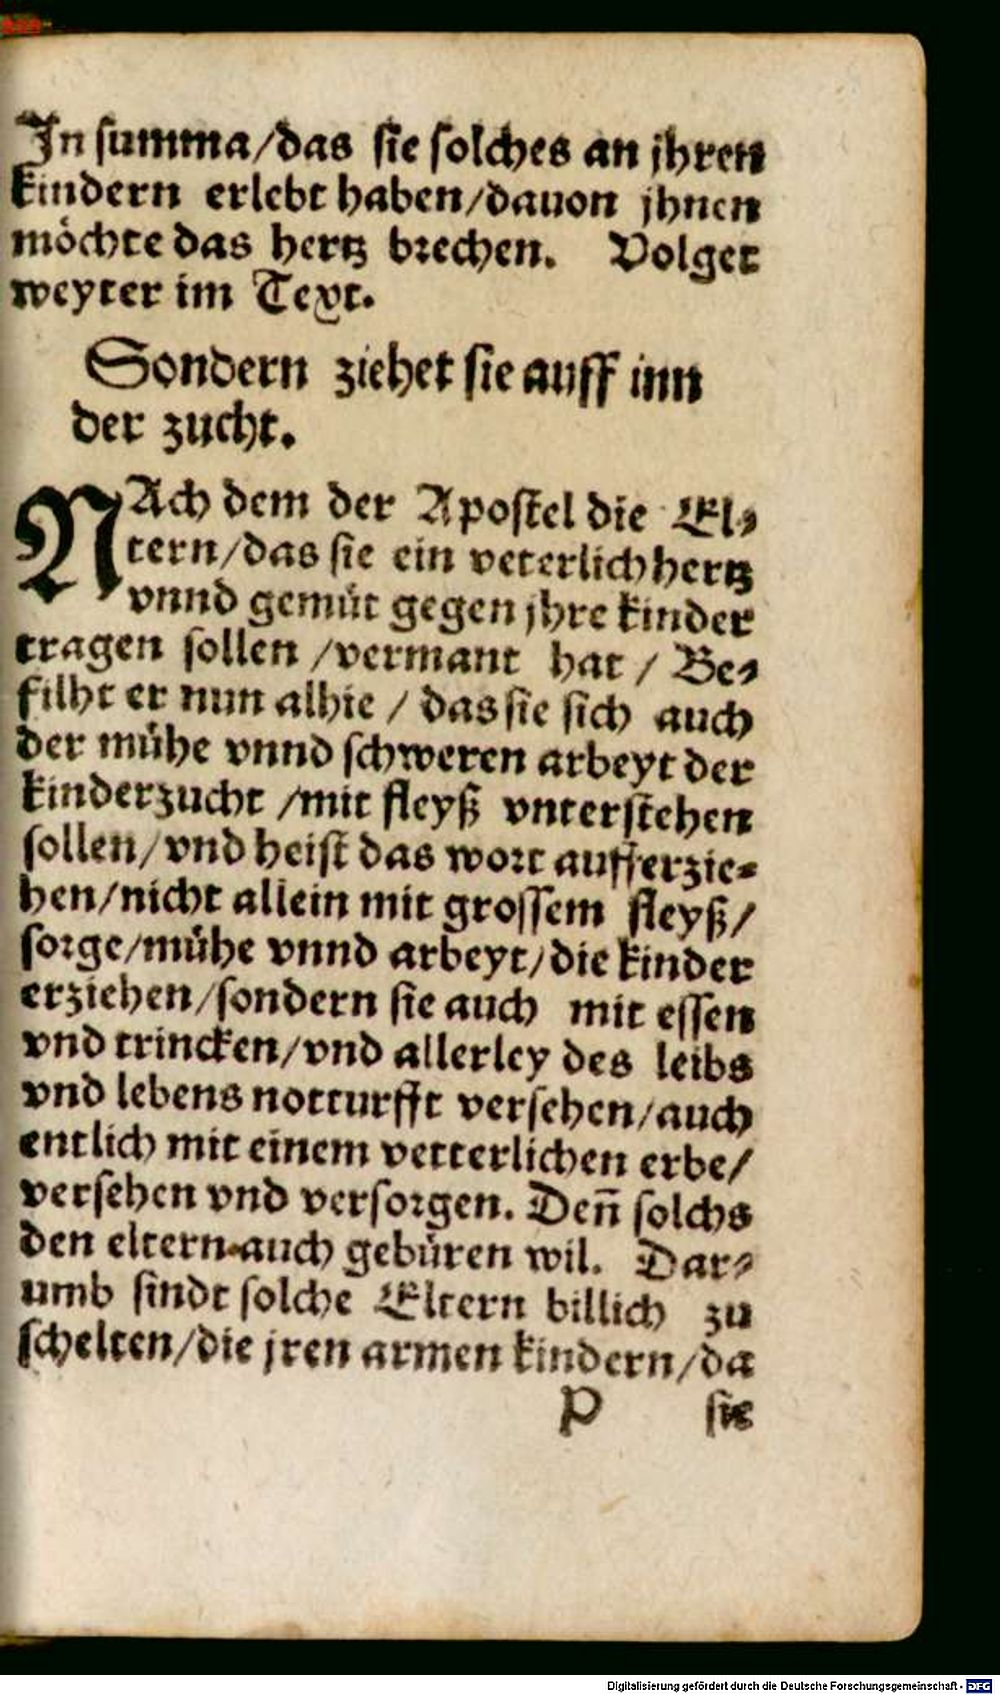 In summa/das sie solches an jhren
kindern erlebt haben/dauon jhnen
möchte das hertz brechen. Volget
weyter im Text.
Sondern ziehet sie auff inn
der zucht.
NAch dem der Apostel die El-
tern/das sie ein veterlich hertz
vnnd gemüt gegen jhre kinder
tragen sollen/vermant hat/Be-
filht er nun alhie/das sie sich auch
der mühe vnnd schweren arbeyt der
kinderzucht/mit fleyß vnterstehen
sollen/vnd heist das wort aufferzie-
hen/nicht allein mit grossem fleyß/
sorge/mühe vnnd arbeyt/die kinder
erziehen/sondern sie auch mit essen
vnd trincken/vnd allerley des leibs
vnd lebens notturfft versehen/auch
entlich mit einem vetterlichen erbe/
versehen vnd versorgen. Deñ solchs
den eltern auch gebüren wil. Dar-
umb sindt solche Eltern billich zu
schelten/die jren armen kindern/da
P sie
Digitalisierung gefördert durch die Deutsche Forschungsgemeinschaft - DFG